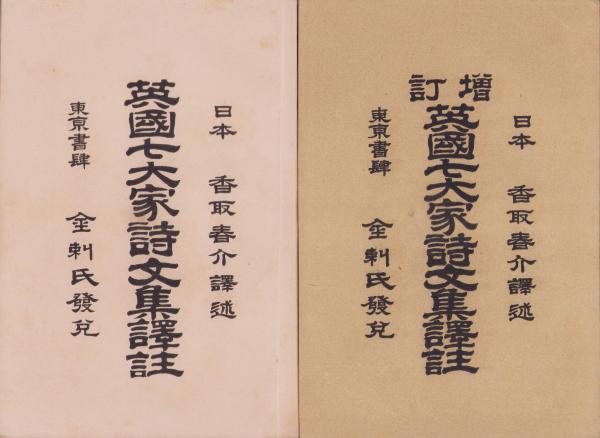 日本 香取春介譯述
英國七大家詩文集譯註
東京書肆 金刺氏發兌
增訂
日本 香取春介譯述
英國七大家詩文集譯註
東京書肆 金刺氏發兌